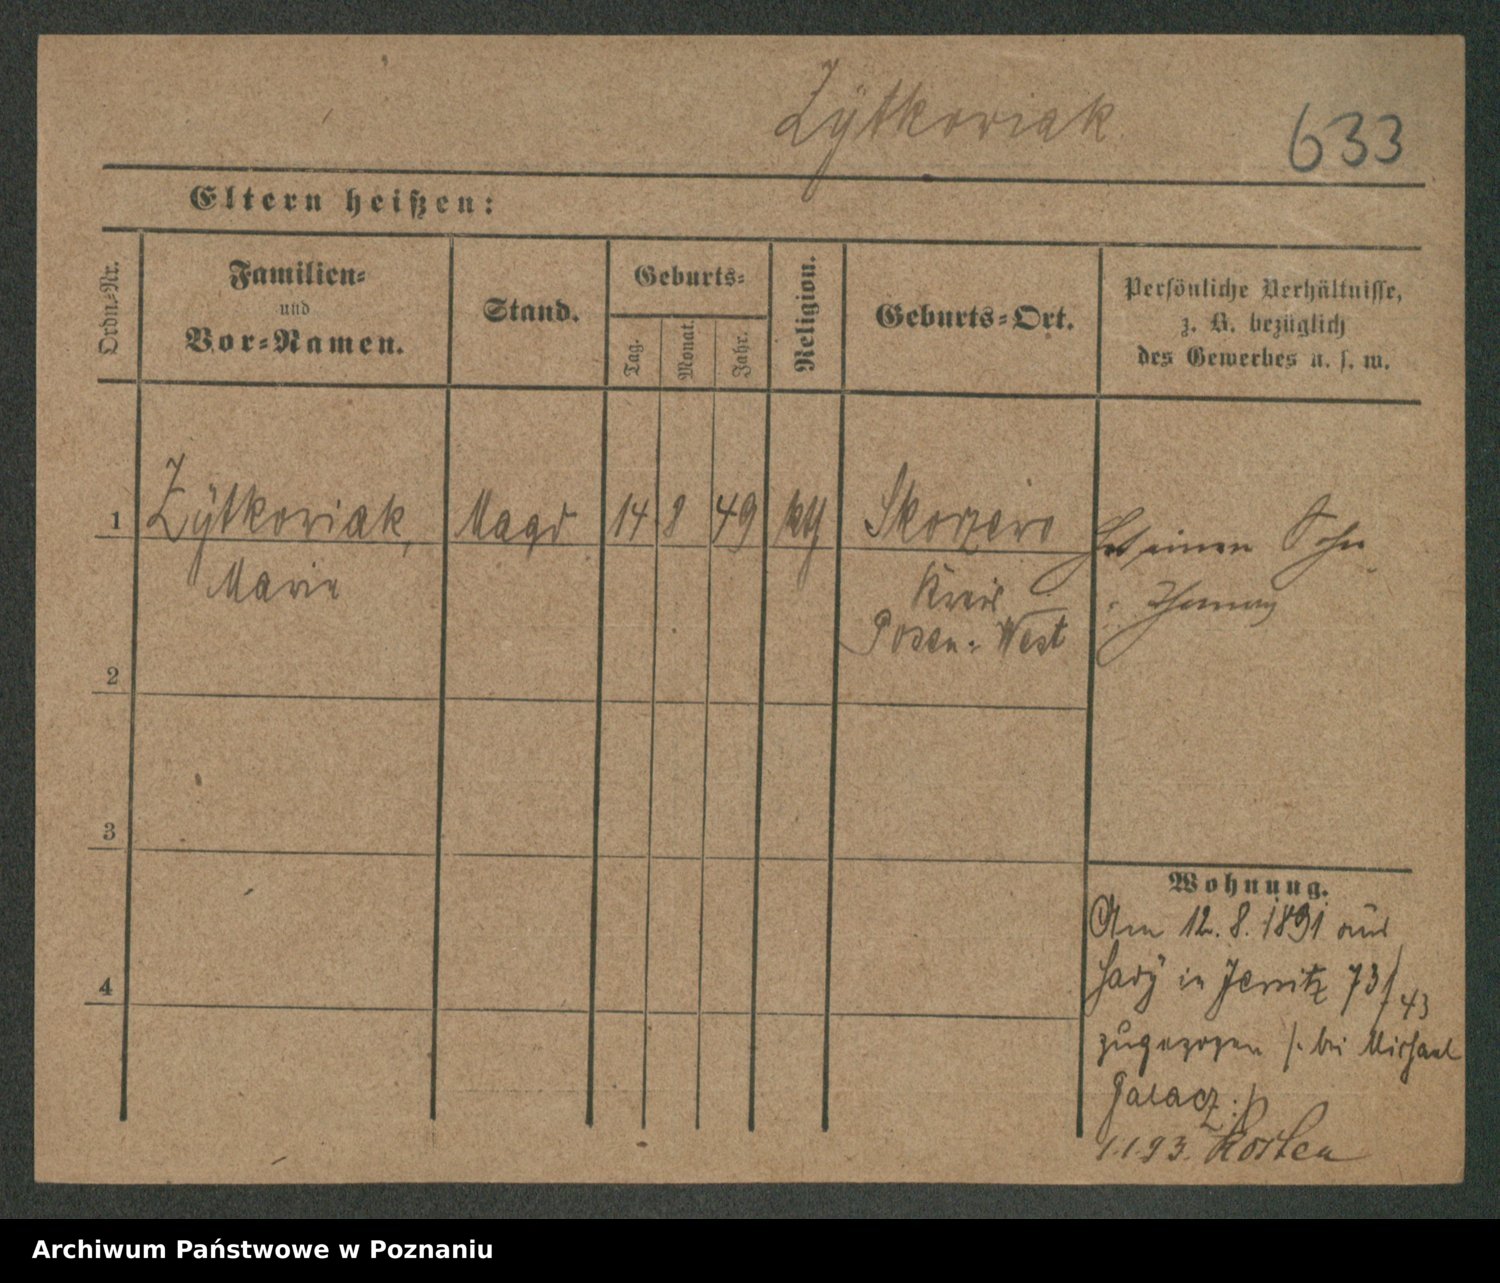 Zÿtkowiak
633
Eltern heißen:
Ordn.-Nr.
Familien-
und
Vor-Namen.
Stand.
Geburts-
Tag.
Monat.
Jahr.
Religion.
Geburts-Ort.
Persönliche Verhältnisse,
z. B. bezüglich
des Gewerbes u. s. w.
1
Zÿtkowiak,
Marie
Magd
14
8
49
kth
Kreis
Posen-West
Hat einen Sohn
2
3
4
Wohnung.
Am 12.8.1891 aus
in Jersitz 73/43
zugezogen /. bei Michael
1.1.93. Kosten
Archiwum Państwowe w Poznaniu